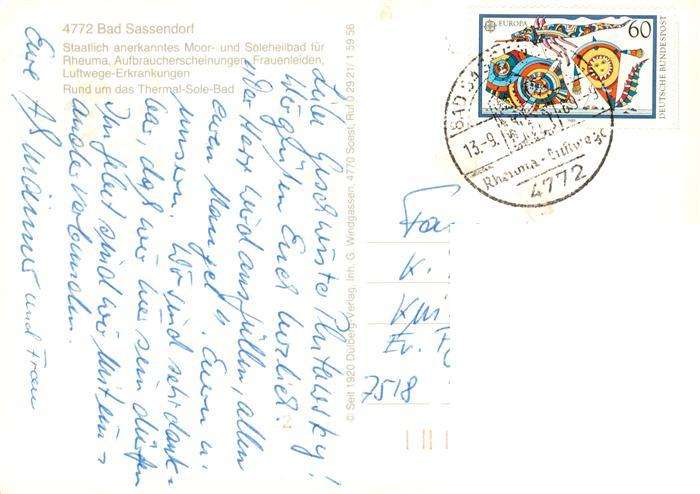 4772 Bad Sassendorf
Staatlich anerkanntes Moor- und Soleheilbad für
Rheuma, Aufbraucherscheinungen, Frauenleiden,
Luftwege-Erkrankungen
Rund um das Thermal-Sole-Bad
Liebe Geschwister
Wir grüßen Euch herzlich!
Der Herr wird ausfüllen, allen
euren Mangel, Euern u.
unsern. Wir sind sehr dank-
bar, daß wir hier sein dürfen
Im Gebet sind wir mitein-
ander verbunden.
Eure und Frau
© Seit 1920 Dülberg-Verlag, Inh. G. Windgassen, 4770 Soest, Ruf 0 29 21/ 1 59 56
EUROPA
60
DEUTSCHE BUNDESPOST
BAD SA
13.-9.
Rheuma - Luftwege
4772
Fa
K.
Ev.
7518